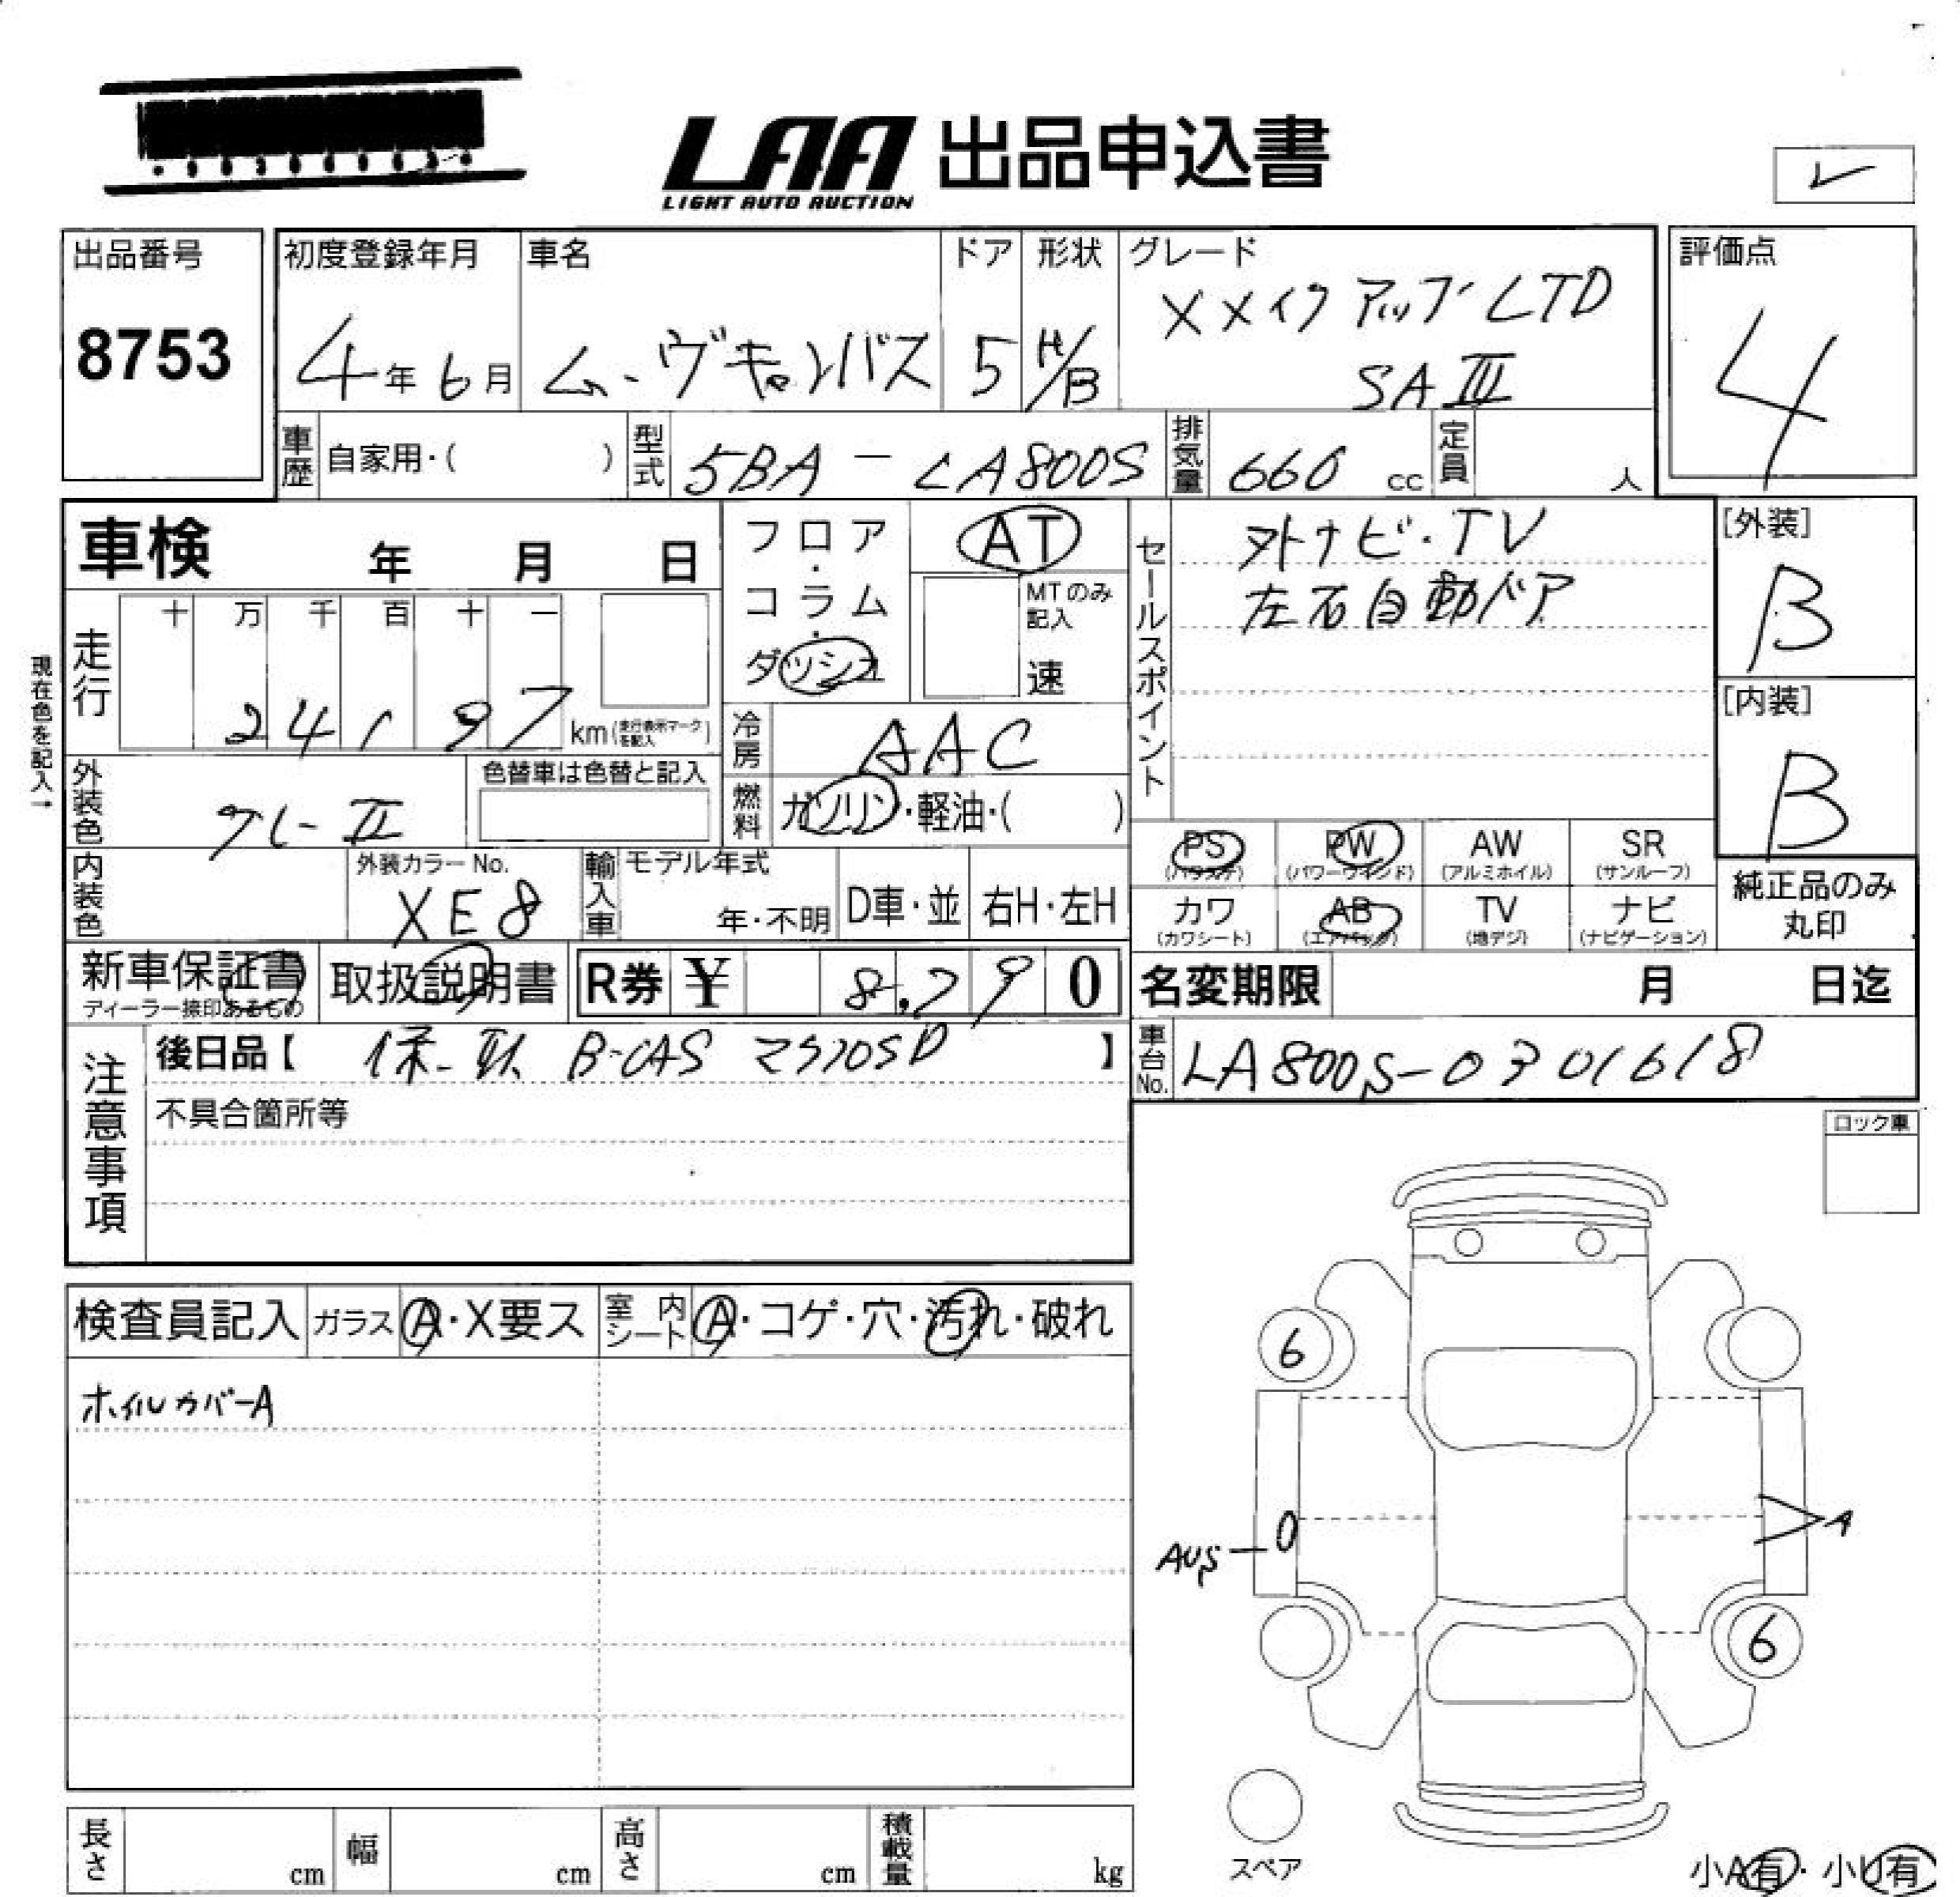 LAA 出品申込書
LIGHT AUTO AUCTION
レ
出品番号
8753
初度登録年月
4年 6月
車名
ムーヴキャンバス
ドア
5
形状
H/B
グレード
XメイクアップLTD
SAⅢ
評価点
4
車歴 自家用・( )
型式 5BA-LA800S
排気量 660 cc
定員 人
車検 年 月 日
フロア・コラム・ダッシュ
AT
MTのみ記入
速
セールスポイント
外ナビ・TV
左右自動ドア
[外装]
B
[内装]
B
現在色を記入→
走行
十 万 千 百 十 一
24197 km(走行表示マークを記入)
冷房 AAC
外装色 グレーⅡ
色替車は色替と記入
燃料 ガソリン・軽油・( )
内装色
外装カラーNo.
XE8
輸入車
モデル年式
年・不明
D車・並
右H・左H
PS (パワステ)
PW (パワーウインド)
AW (アルミホイル)
SR (サンルーフ)
カワ (カワシート)
AB (エアバック)
TV (地デジ)
ナビ (ナビゲーション)
純正品のみ
丸印
新車保証書
ディーラー捺印あるもの
取扱説明書
R券 ¥ 8,290
名変期限 月 日迄
注意事項
後日品【 保・取 B-CAS SD 】
車台No. LA800S-0301618
不具合箇所等
ロック車
検査員記入
ガラス A・X要ス
室内シート A・コゲ・穴・汚れ・破れ
ホイルカバーA
6
AUS
0
A
6
スペア
長さ cm
幅 cm
高さ cm
積載量 kg
小A有・小U有